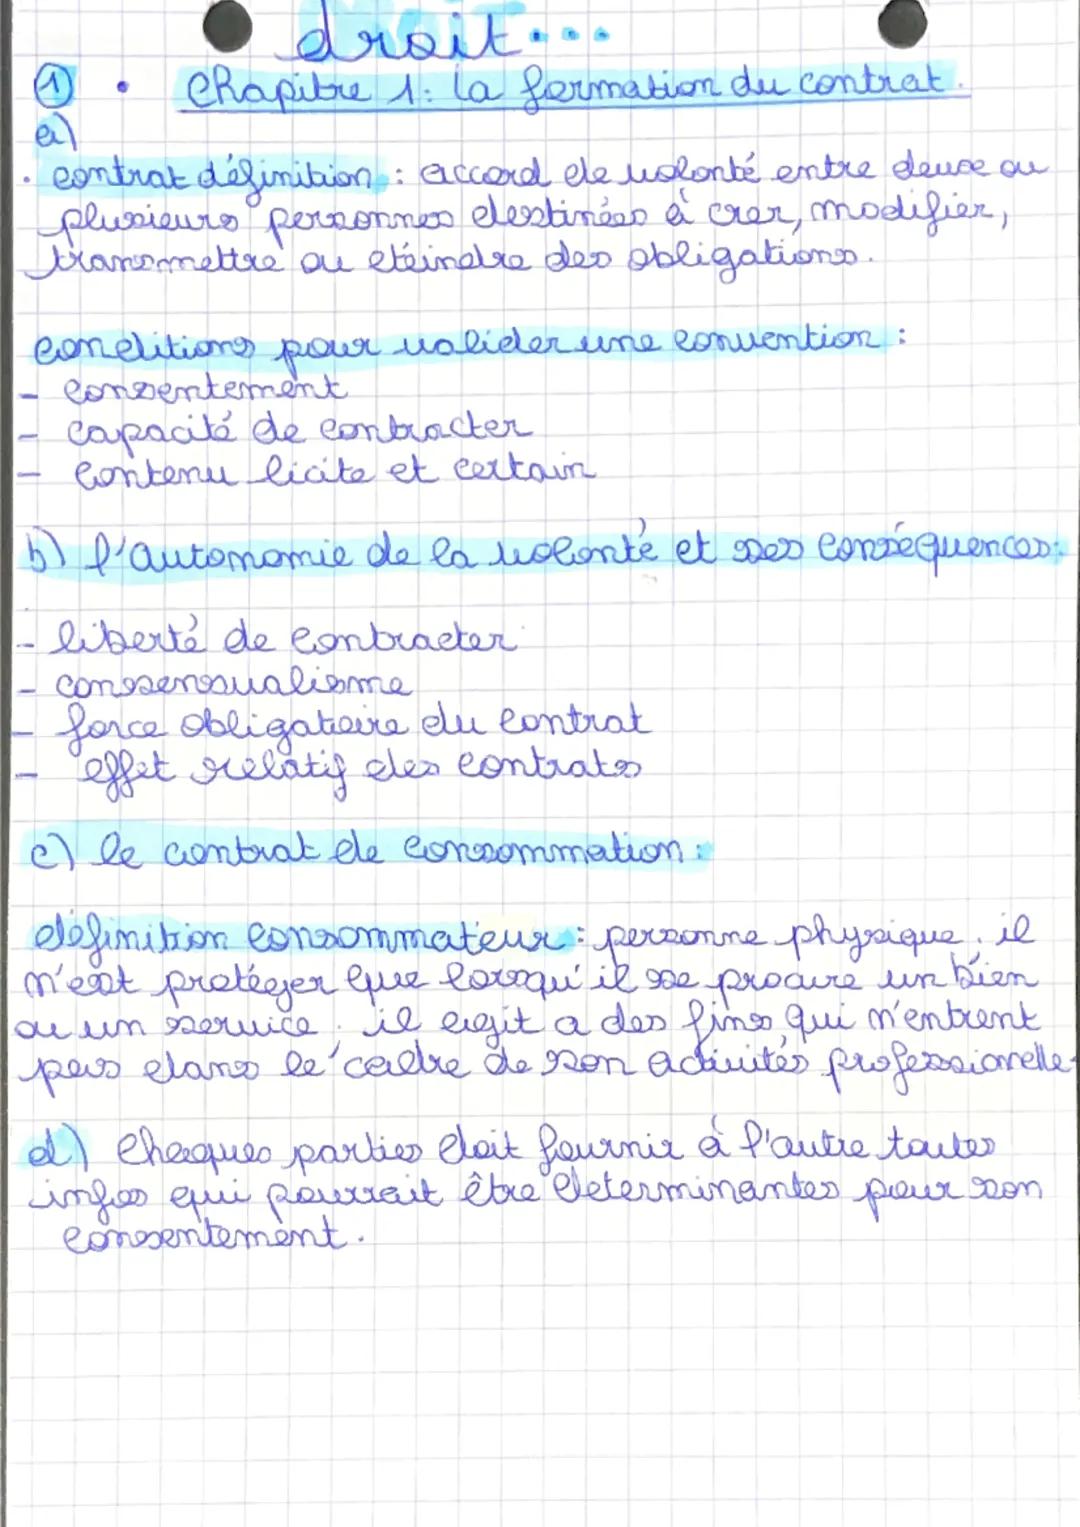 droit...
① • Chapitre 1: la formation du contrat.
a)
• contrat définition : accord de volonté entre deux ou
plusieurs personnes destinées à crer, modifier,
transmettre ou eteindre des obligations.
conditions pour valider une convention :
- consentement
- capacité de contracter
- contenu licite et certain
b) l'autonomie de la volonté et ses conséquences:
- liberté de contracter
- conssensualisme
- force obligatoire du contrat
- effet relatif des contrats
c) le contrat de consommation :
définition consommateur : personne physique. il
n'est protéger que lorsqu'il se procure un bien
ou un service. il agit a des fins qui n'entrent
pas dans le cadre de son activités professionelle.
d) Chaques parties doit fournir à l'autre toutes
infos qui pourrait être determinantes pour son
consentement.